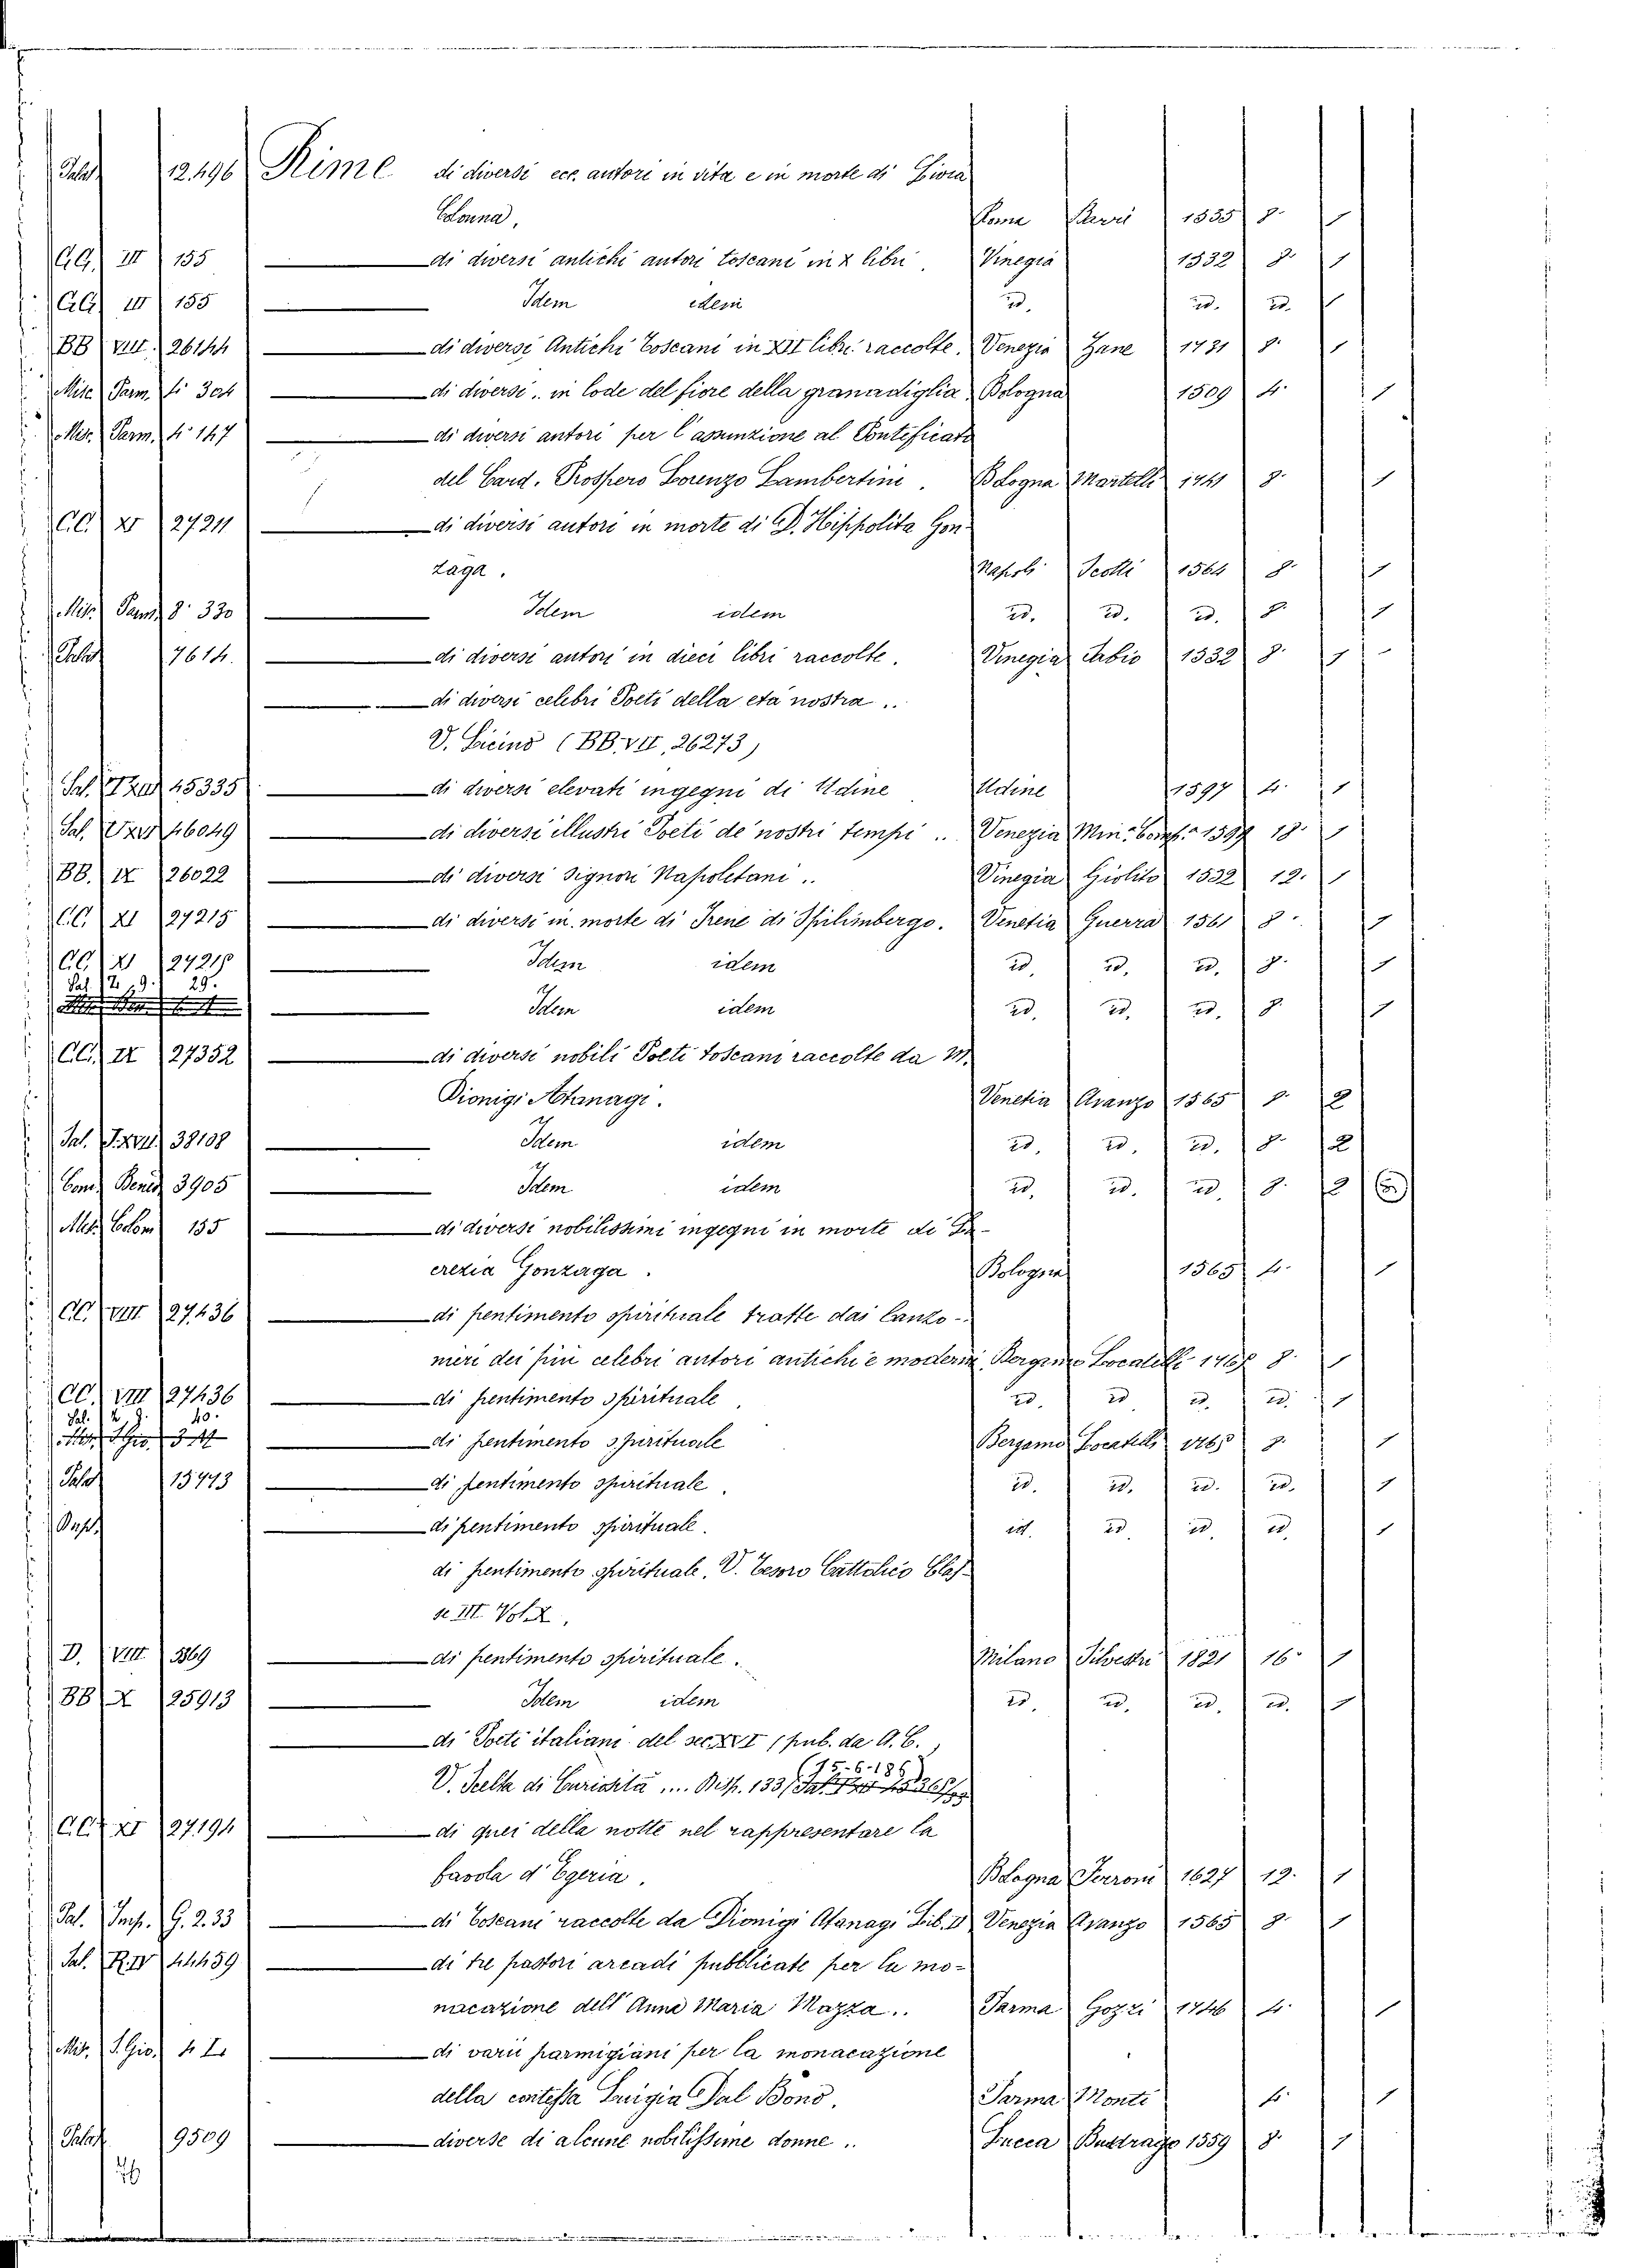 Palat 12496 Rime di diversi ecc. autori in vita e in morte di Livia
Colonna, Roma 1555 8. 1
CC. III 155 — di diversi antichi autori toscani in X libri. Vinegia 1532 8. 1
CC. III 155 — Idem idem id. id. id. 1
BB VIII. 26144 — di diversi Antichi Toscani in XII libri raccolte. Venezia Zane 1731 8. 1
Misc. Parm. fo 304 — di diversi.. in lode del fiore della granadiglia Bologna 1609 4. 1
Mis. Parm. 4o 147 — di diversi autori per l'assunzione al Pontificato
del Card. Prospero Lorenzo Lambertini. Bologna Martelli 1741 8. 1
CC. XI 27211 — di diversi autori in morte di D. Hippolita Gon-
zaga. Napoli Scotti 1564 8. 1
Mis. Parm. 8o 330 — Idem idem id. id. id. 8. 1
Palat 7614. — di diversi autori in dieci libri raccolte. Vinegia Sabio 1532 8. 1
— di diversi celebri Poeti della età nostra..
V. Licino (BB. VII, 26273)
Pal. 45335 — di diversi elevati ingegni di Udine Udine 1597 4. 1
Pal. 46049 — di diversi illustri Poeti de' nostri tempi .. Venezia Min. Comp. 1599 18. 1
BB. IX 26022 — di diversi signori Napoletani.. Vinegia Giolito 1552 12. 1
CC. XI 27215 — di diversi in morte di Irene di Spilimbergo. Venetia Guerra 1561 8. 1
CC. XI 27218 — Idem idem id. id. id. 8. 1
Pal. 2. 9. 29. — Idem idem id. id. id. 8. 1
CC. IX 27352 — di diversi nobili Poeti toscani raccolte da M.
Dionigi Atanagi. Venetia Avanzo 1565 8. 2
Pal. 38108 — Idem idem id. id. id. 8. 2
Com. Bened. 3905 — Idem idem id. id. id. 8. 2 (6)
Mis. Colom. 155 — di diversi nobilissimi ingegni in morte di Lu-
crezia Gonzaga. Bologna 1565 4. 1
CC. VIII 27436 — di pentimento spirituale tratte dai canzo-
nieri dei più celebri autori antichi e moderni Bergamo Locatelli 1765 8. 1
CC. VIII 27436 — di pentimento spirituale. id. id id. id. 1
Pal. 2. 9. 40. — di pentimento spirituale Bergamo Locatelli 1765 8. 1
Palat 13773 — di pentimento spirituale. id. id. id. id. 1
— di pentimento spirituale. id. id id. id. 1
di pentimento spirituale. V. Tesoro Cattolico Clas-
se III. Vol. X.
D. VIII 5869 — di pentimento spirituale. Milano Silvestri 1821 16. 1
BB X 25913 — Idem idem id. id. id. id. 1
— di Poeti italiani del sec. XVI (pub. da A. C.,
V. Scelta di Curiosità .... Disp. 133 (15-6-186)
CC. XI 27194 — di quei della notte nel rappresentare la
favola d'Egeria. Bologna Ferroni 1627 12. 1
Pal. Imp. G. 2. 33 — di Toscani raccolte da Dionigi Atanagi Lib. II Venezia Avanzo 1565 8. 1
Pal. R. IV 44459 — di tre pastori arcadi pubblicate per la mo-
nacazione dell'Anna Maria Mazza.. Parma Gozzi 1746 4. 1
Mis. S. Gio. 4. I. — di varii parmigiani per la monacazione
della contessa Luigia Dal Bono. Parma Monti 4. 1
Palat 9509 — diverse di alcune nobilissime donne .. Lucca Busdrago 1559 8. 1
26